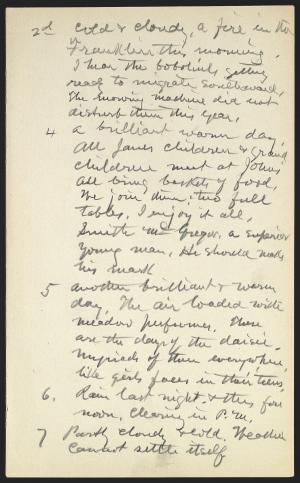 2d cold & cloudy, a fire in the
Franklin this morning.
I hear the bobolinks getting
ready to migrate southward,
The mowing machine did not
disturb them this year,
4 a brilliant warm day.
All Janes children & grand
children meet at Johns
All bring baskets of food,
We join them; two full
tables. I enjoy it all,
Smith McGregor, a superior
young man, He should make
his mark
5 another brilliant & warm
day, The air loaded with
meadow perfumes. These
are the days of the daisies.
Myriads of them everywhere,
like girls faces in their teens,
6. Rain last night & this fore
noon. Clearing in P.M.
7 Partly cloudy & cold. Weather
cannot settle itself